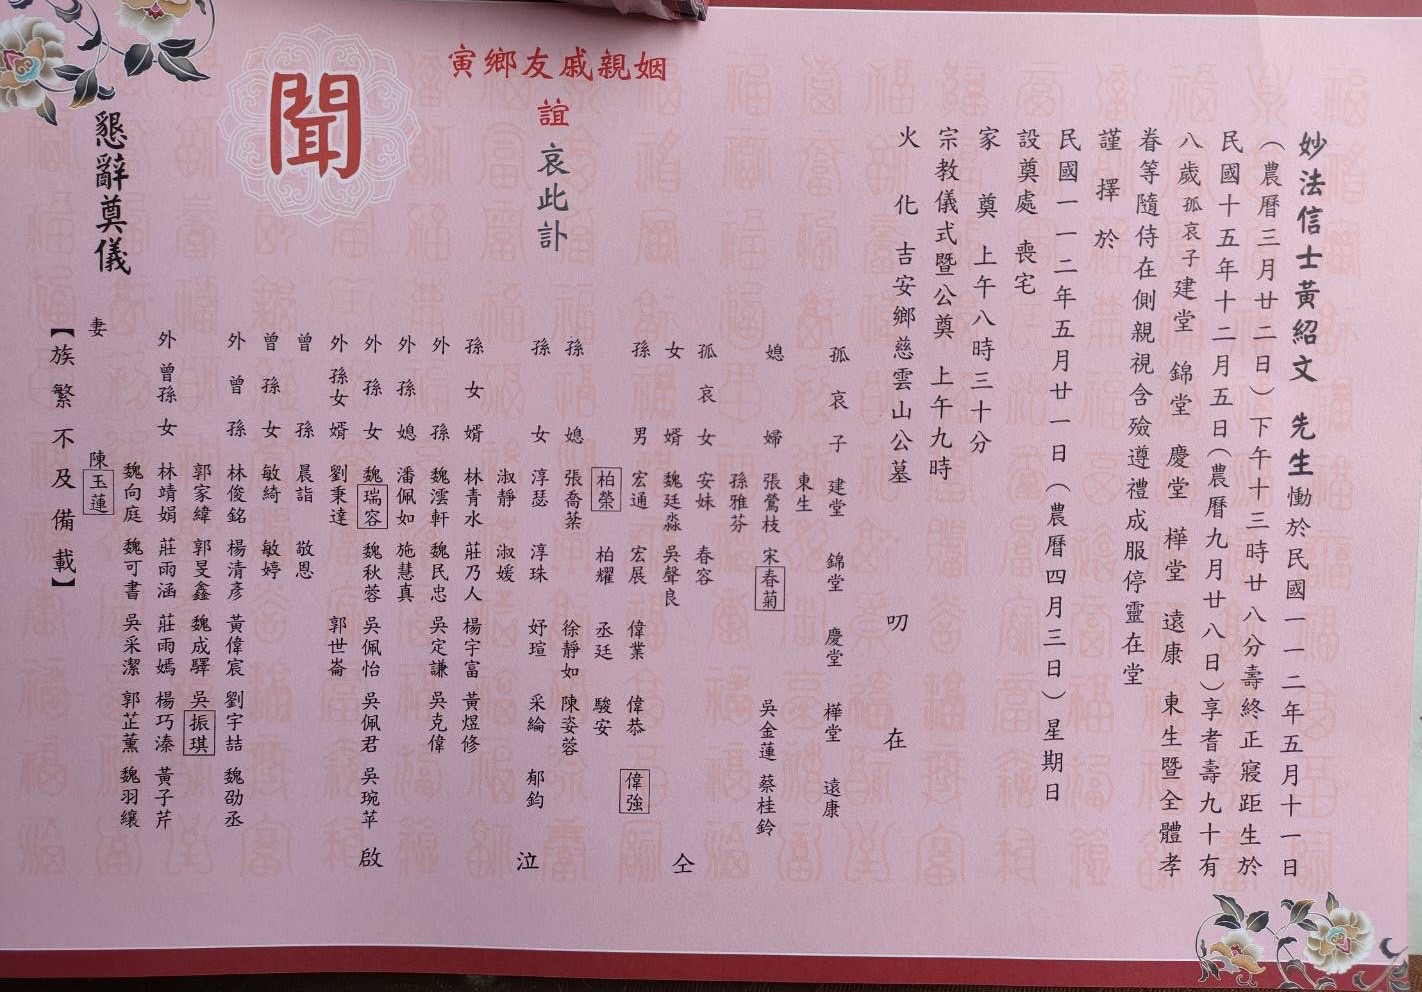 妙法信士黃紹文 先生慟於民國一一二年五月十一日
(農曆三月廿二日)下午十三時廿八分壽終正寢距生於
民國十五年十二月五日(農曆九月廿八日)享耆壽九十有
八歲孤哀子建堂 錦堂 慶堂 樺堂 遠康 東生暨全體孝
眷等隨侍在側親視含殮遵禮成服停靈在堂
謹擇於
民國一一二年五月廿一日(農曆四月三日)星期日
設奠處 喪宅
家奠 上午八時三十分
宗教儀式暨公奠 上午九時
火化 吉安鄉慈雲山公墓
叨在
寅鄉友戚親姻
誼
哀此訃
聞
孤哀子 建堂 錦堂 慶堂 樺堂 遠康
東生
媳婦 張鶯枝 宋春菊 吳金蓮 蔡桂鈴
孫雅芬
孤哀女 安妹 春容
女婿 魏廷淼 吳聲良
仝
孫男 宏通 宏展 偉業 偉恭 偉強
柏榮 柏耀 丞廷 駿安
孫媳 張喬棻 徐靜如 陳姿蓉
孫女 淳瑟 淳珠 妤瑄 采綸 郁鈞
泣
淑靜 淑媛
孫女婿 林青水 莊乃人 楊宇富 黃煜修
外孫 魏澐軒 魏民忠 吳定謙 吳克偉
外孫媳 潘佩如 施慧真
外孫女 魏瑞容 魏秋蓉 吳佩怡 吳佩君 吳琬苹
啟
外孫女婿 劉秉達 郭世崙
曾孫 晨詣 敬恩
曾孫女 敏綺 敏婷
外曾孫 林俊銘 楊清彥 黃偉宸 劉宇喆 魏劭丞
郭家緯 郭旻鑫 魏成驛 吳振琪
外曾孫女 林靖娟 莊雨涵 莊雨嫣 楊巧溱 黃子芹
魏向庭 魏可書 吳采潔 郭芷薰 魏羽纕
妻 陳玉蓮
懇辭奠儀
【族繁不及備載】